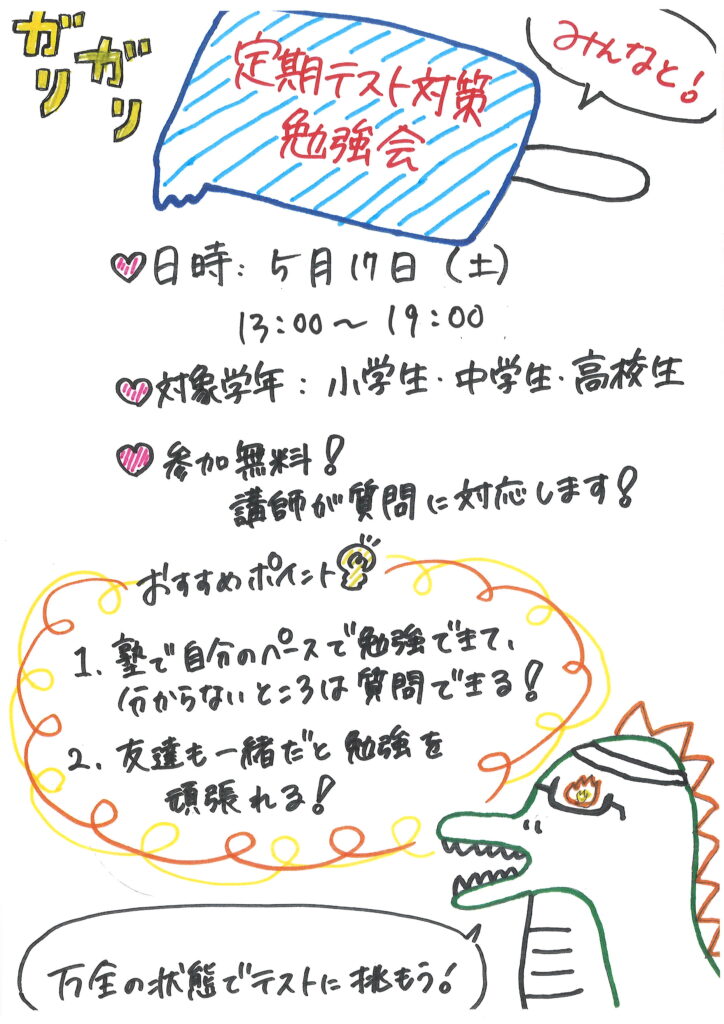 ガリ
ガリ
定期テスト対策
勉強会
みんなと!
日時: 5月17日(土)
13:00〜19:00
対象学年: 小学生・中学生・高校生
参加無料!
講師が質問に対応します!
おすすめポイント
1. 塾で自分のペースで勉強できて、
分からないところは質問できる!
2. 友達も一緒だと勉強を
頑張れる!
万全の状態でテストに挑もう!